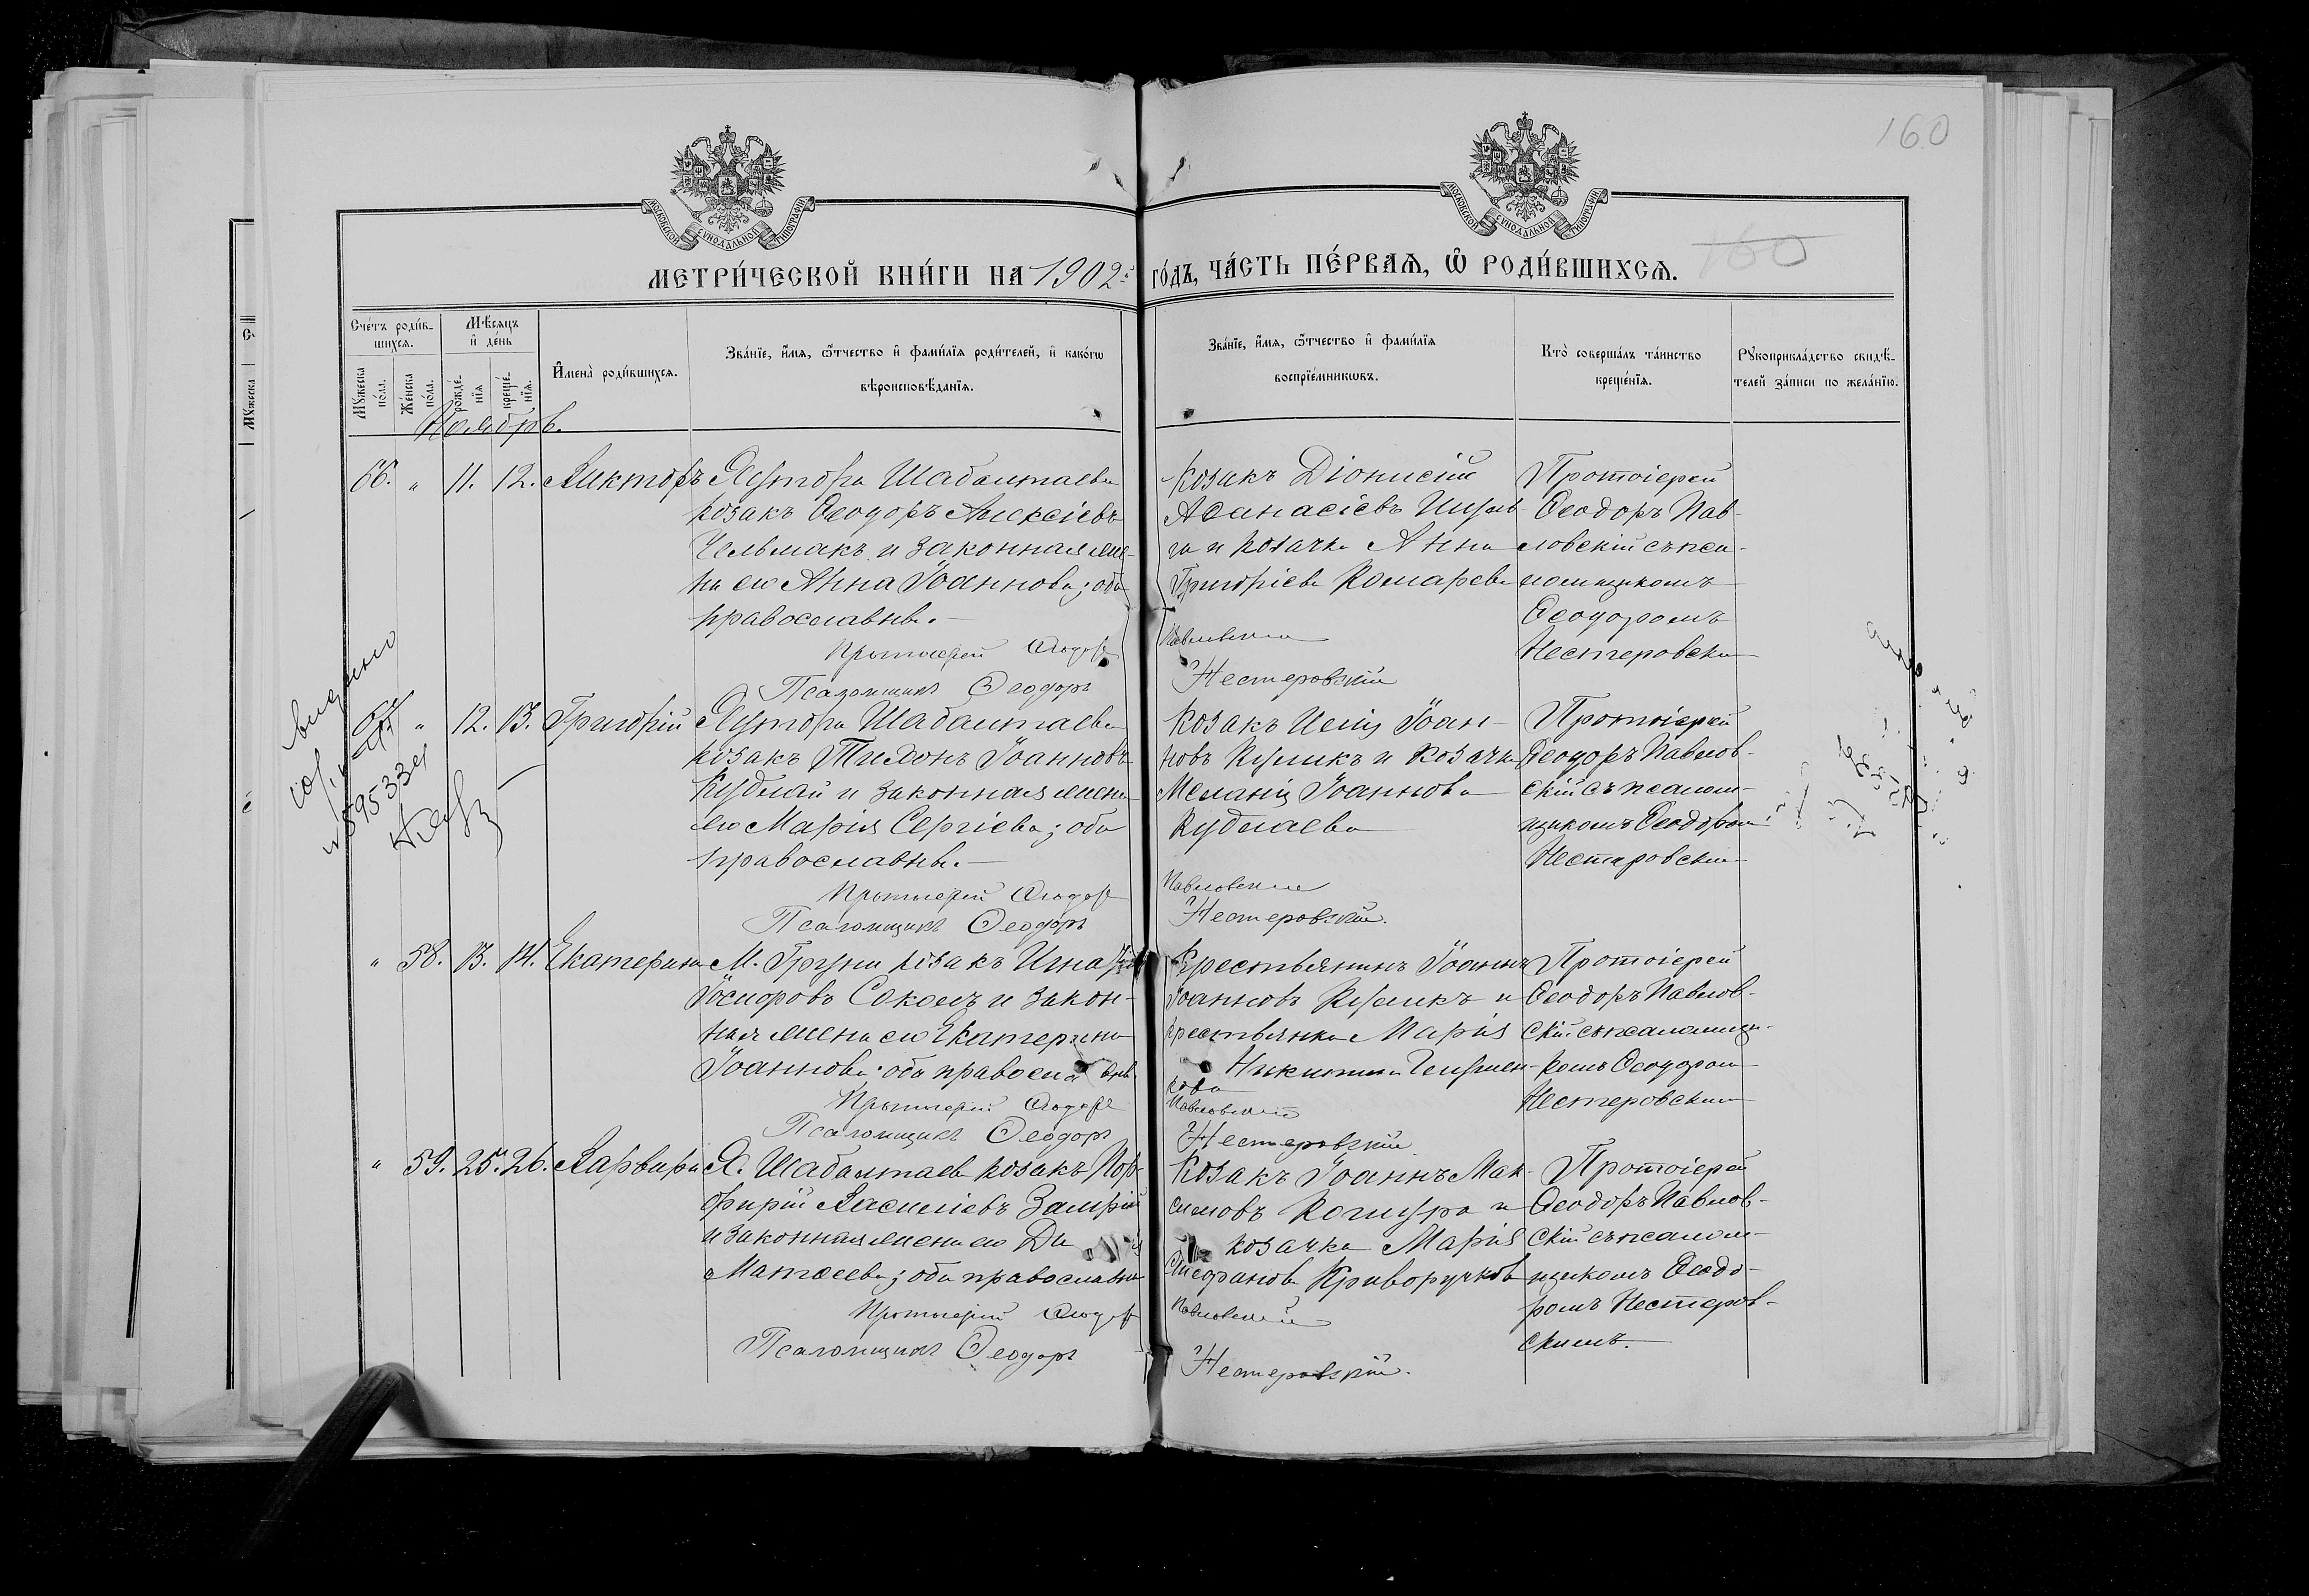 160
МОСКОВСКОЙ СѴНОДАЛЬНОЙ ТИПОГРАФІИ
МОСКОВСКОЙ СѴНОДАЛЬНОЙ ТИПОГРАФІИ
МЕТРИ́ЧЕСКОЙ КНИ́ГИ НА 1902й
ГО́ДЪ, ЧА́СТЬ ПЕ́РВАѦ, Ѡ҆ РОДИ́ВШИХСѦ.
160
Сче́тъ роди́в-
шихсѧ.
Мѣ́сѧцъ
и҆ де́нь
Мꙋ́жеска
по́ла.
Же́нска
по́ла.
рожде́-
нїѧ
креще́-
нїѧ.
И҆мена̀ роди́вшихсѧ.
Зва́нїе, и҆́мѧ, ѻ҆́тчество и҆ фами́лїѧ роди́телей, и҆ како́гѡ
вѣроисповѣ́данїѧ.
Зва́нїе, и҆́мѧ, ѻ҆́тчество и҆ фами́лїѧ
воспрїе́мникѡвъ.
Кто̀ соверша́лъ та́инство
креще́нїѧ.
Рꙋкоприкла́дство свидѣ́-
телей за́писи по жела́нїю.
Ноябрь.
66. „ 11. 12. Викторъ
Хутора Шабалтаева
козакъ Ѳеодоръ Алексіевъ
Чельмакъ и законная же-
на его Анна Іоаннова; оба
православны.
Протоіерей Ѳеодоръ
Псаломщикъ Ѳеодоръ
Козакъ Діонисій
Аѳанасіевъ
га и козачка Анна
Григоріева Комарева
Павловскій
Нестеровскій
Протоіерей
Ѳеодоръ Пав-
ловскій съ пса-
ломщикомъ
Ѳеодоромъ
Нестеровским
видано
№ 595334
„ 12. 13. Григорій
Хутора Шабалтаева
козакъ Тихонъ Іоанновъ
Кублай и законная жена
его Марія Сергіева; оба
православны.
Протоіерей Ѳеодоръ
Псаломщикъ Ѳеодоръ
Козакъ Іоан-
новъ Куликъ и козачка
Меланія Іоаннова
Кублаева
Павловскій
Нестеровскій.
Протоіерей
Ѳеодоръ Павлов-
скій съ псалом-
щикомъ Ѳеодором
Нестеровским
„ 58. 13. 14. Екатерина
М. Груни козакъ Игнатій
Соколъ и закон-
ная жена его Екатерина
Іоаннова; оба православны.
Протоіерей Ѳеодоръ
Псаломщикъ Ѳеодоръ
Крестьянинъ Іоаннъ
Іоанновъ Куликъ и
крестьянка Марія
Никитина
кова
Павловскій
Нестеровскій
Протоіерей
Ѳеодоръ Павлов-
скій съ псаломщи-
комъ Ѳеодором
Нестеровским
„ 59. 25. 26. Варвара
Х. Шабалтаева козакъ Пор-
фирій Василіевъ Замрій
и законная жена его Да
Матѳеева; оба православны
Протоіерей Ѳеодоръ
Псаломщикъ Ѳеодоръ
Козакъ Іоаннъ Мак-
симовъ Кочура и
козачка Марія
Стефанова Криворучкова
Павловскій
Нестеровскій.
Протоіерей
Ѳеодоръ Павлов-
скій съ псалом-
щикомъ Ѳеодо-
ромъ Нестеров-
скимъ.